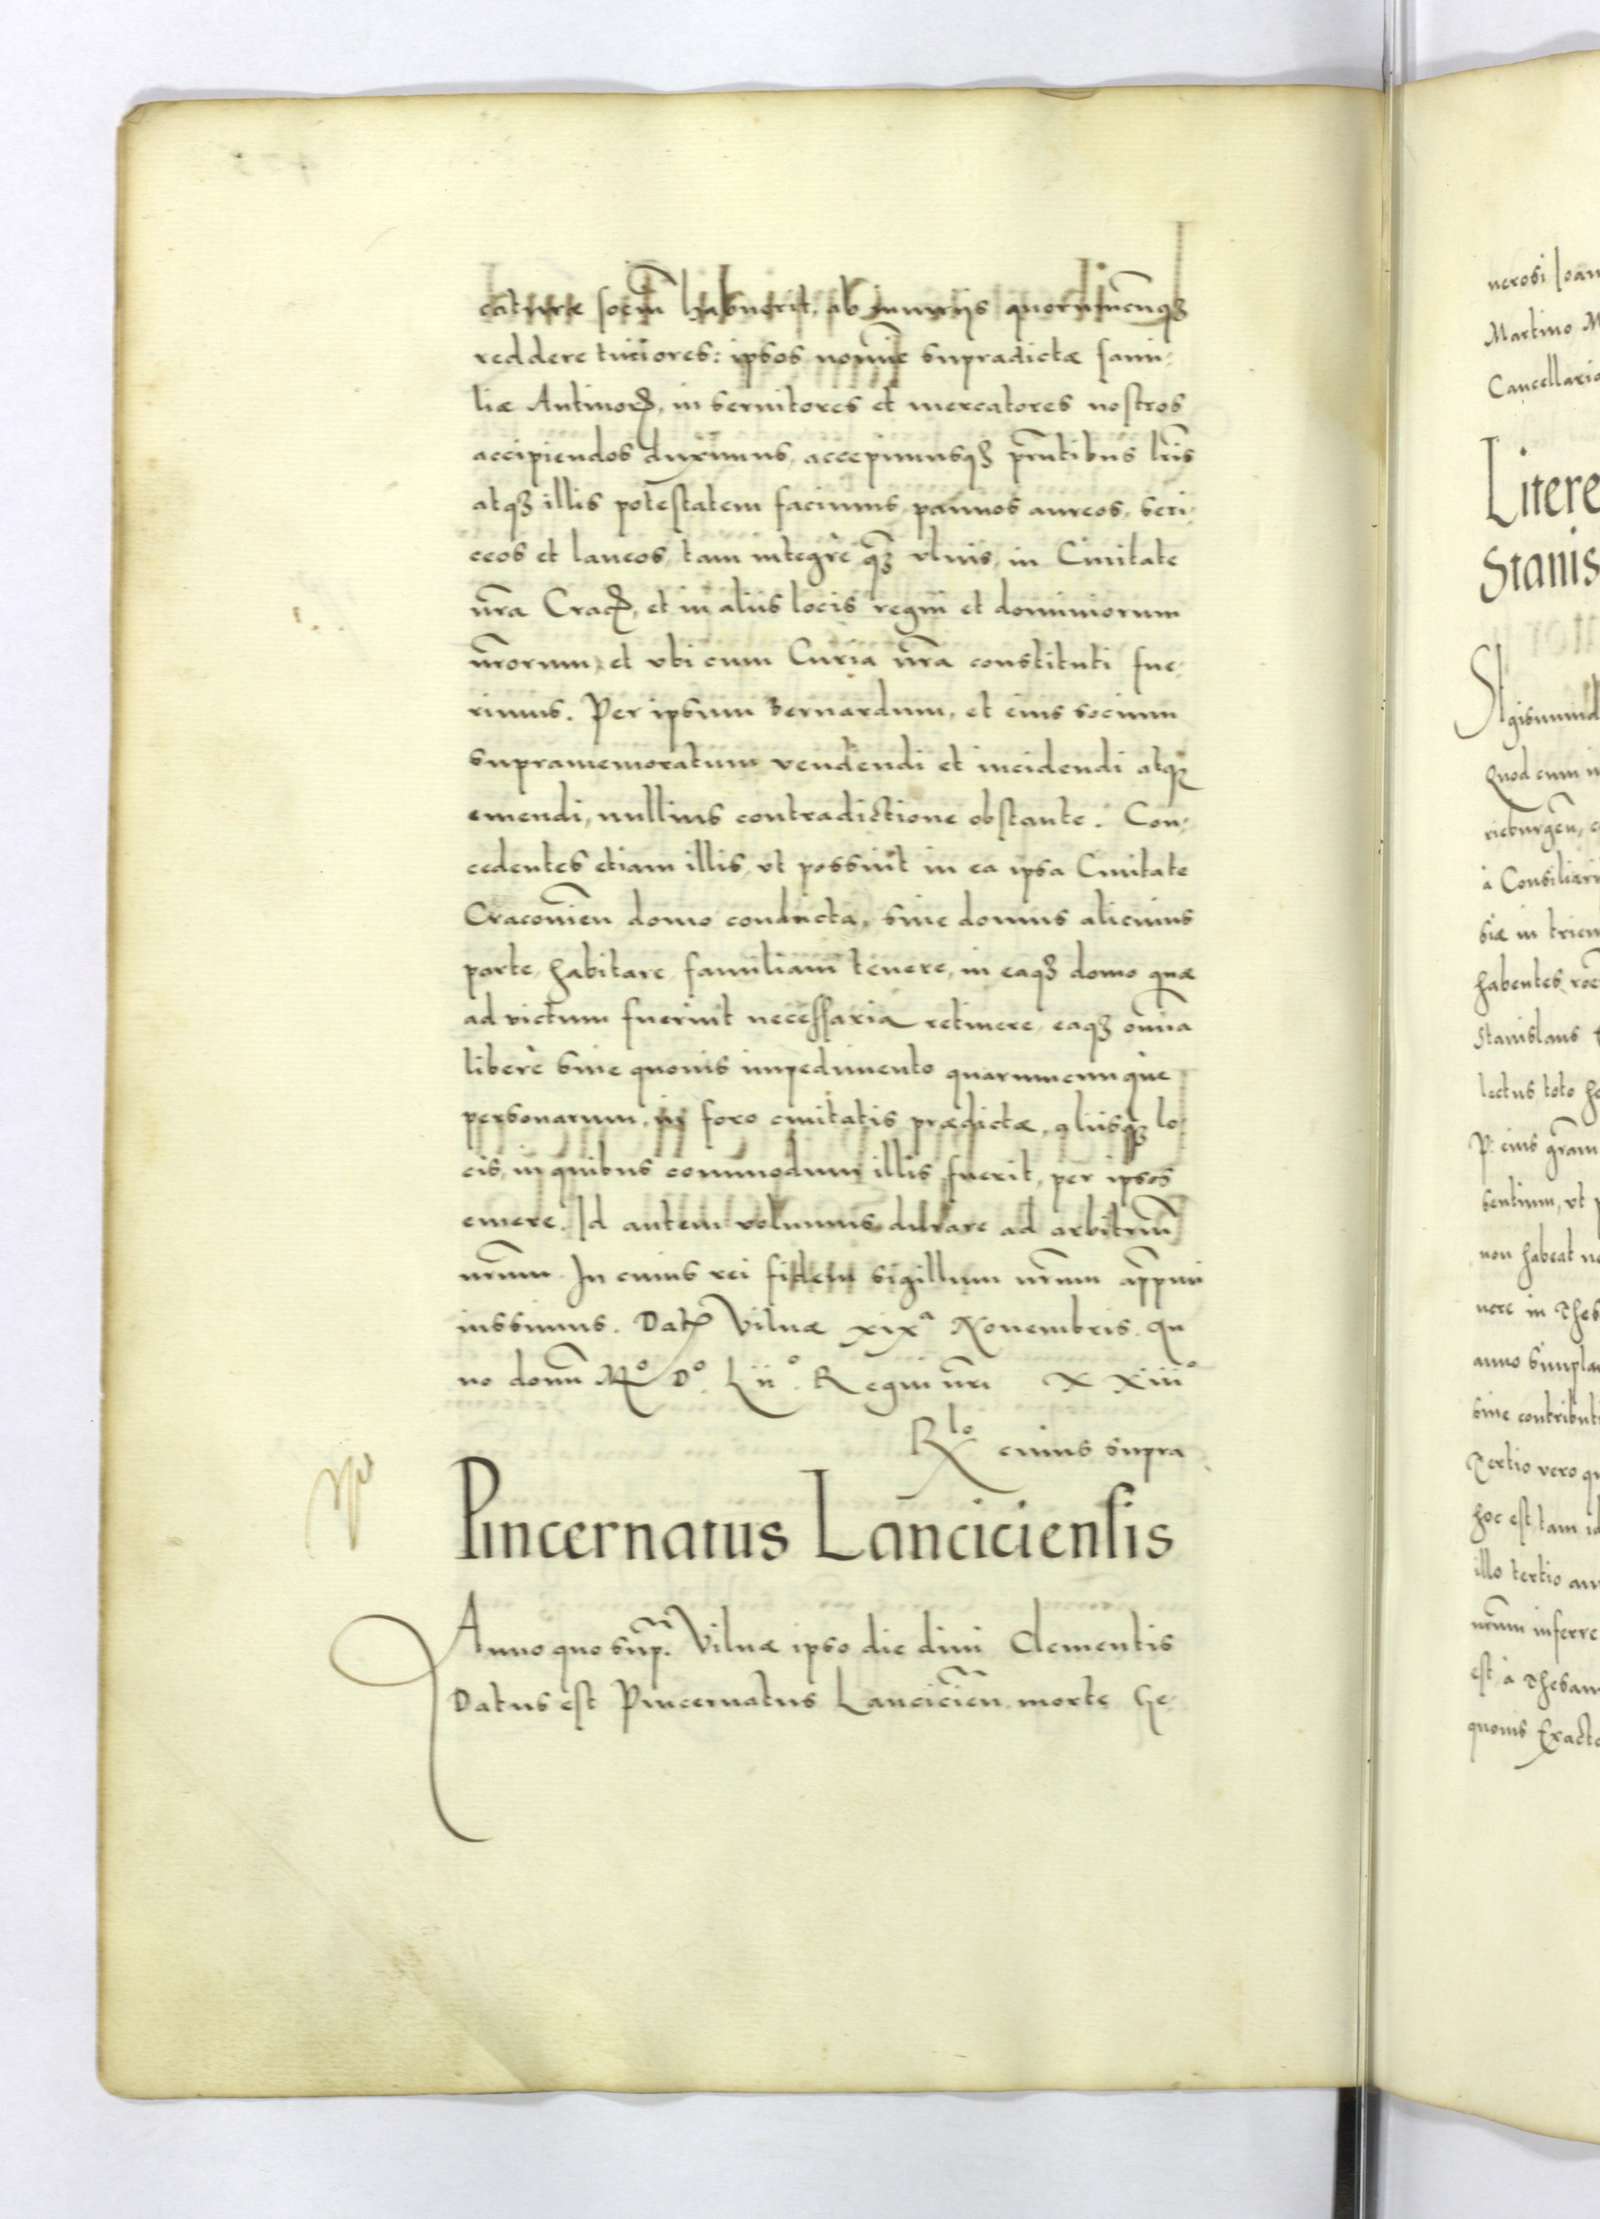 caturæ sociũ habuerit, ab iniurijs quorũcunqꝫ
reddere tutiores: ipsos nomĩe supradictæ fami-
liæ Antinorꝝ, in seruitores et mercatores nostros
accipiendos duximus, accepimusqꝫ pñtibus lrĩs
atqꝫ illis potestatem facimus, pannos aureos, seri-
ceos et laneos, tam integrè qꝫ vlnis, in Ciuitate
nr̃a Cracꝫ, et in aliis locis regni et dominiorum
nr̃orum, et vbi cum Curia nr̃a constituti fue-
rimus. Per ipsum Bernardum, et eius socium
supramemoratum vendendi et incidendi atqꝫ
emendi, nullius contradictione obstante. Con-
cedentes etiam illis, vt possint in ea ipsa Ciuitate
Cracouieñ domo conducta, siue domus alicuius
parte, habitare, familiam tenere, in eaqꝫ domo quæ
ad victum fuerint necessaria retinere, eaqꝫ omĩa
liberè sine quouis impedimento quarumcunque
personarum, in foro ciuitatis prædictæ, aliisqꝫ lo-
cis, in quibus commodum illis fuerit, per ipsos
emere. Id autem volumus durare ad arbitriũ
nr̃um. In cuius rei fidem sigillum nr̃um app̃ni
iussimus. Datꝫ Vilnæ xixᵃ Nouembris. An
no domĩ Mº Dº. Lii º. Regni nr̃i XXiiiº
Rˡᵒ cuius supra
Pincernatus Lanciciensis
Anno quo sup̃. Vilnæ ipso die diui Clementis
Datus est Pincernatus Lancicieñ. morte Ge-
nerosi Ioan
Martino M
Cancellario
Litere
Stanis
Sigismund
Quod cum
rieburgeñ,
à Consiliari
siæ in trien
habentes
Stanislaus
lectus toto
P. eius gr̃am
sentium, vt
non habeat
nere in Thes
anno
sine contributi
Tertio vero
hoc est, tam
illo tertio
nr̃um inferre
est à Thesau
quouis Exacto